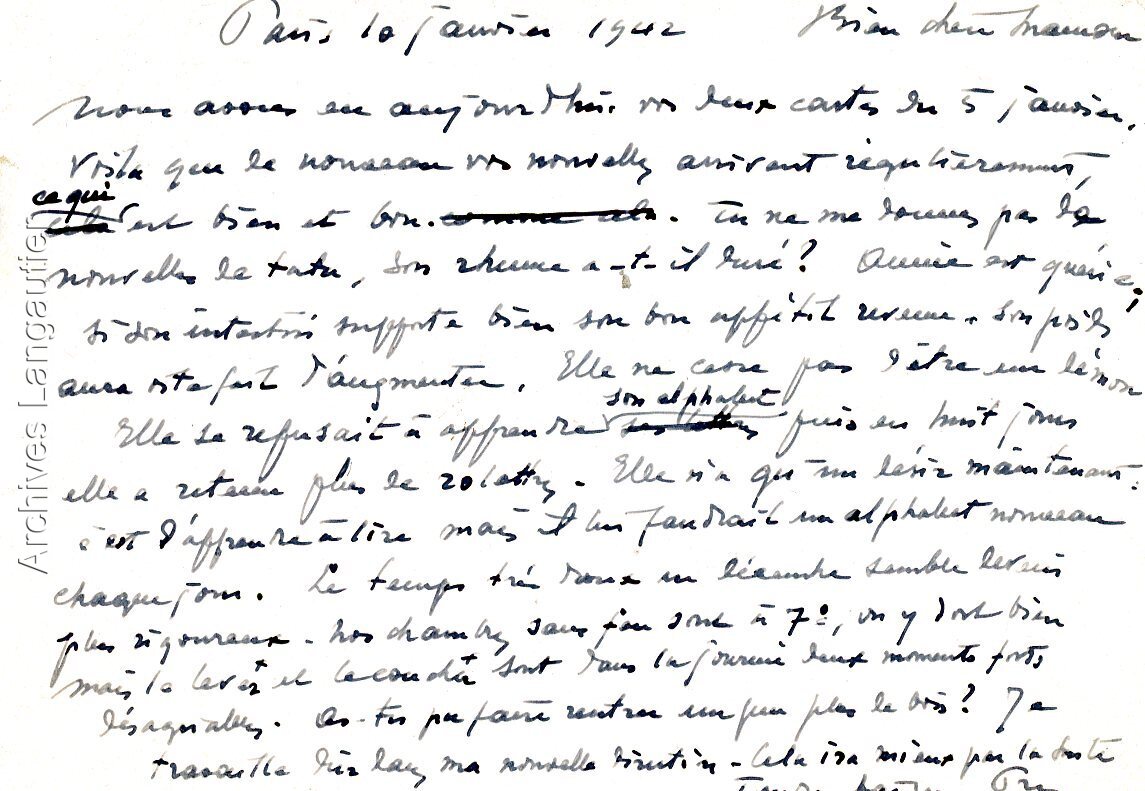 Paris 10 janvier 1942 Bien chère maman
nous avons eu aujourd'hui vos deux cartes du 5 janvier.
Voilà que de nouveau vos nouvelles arrivent régulièrement,
ce qui
cela est bien et bon. comme cela. Tu ne me donnes pas de
nouvelles de tata, son rhume a-t-il duré? Annie est guérie;
si son intestin supporte bien son bon appétit revenu. Son poids
aura vite fait d'augmenter. Elle ne cesse pas d'être un démon
son alphabet
Elle se refusait à apprendre ses lettres puis en huit jours
elle a retenu plus de 20 lettres. Elle n'a qu'un désir maintenant.
c'est d'apprendre à lire mais il lui faudrait un alphabet nouveau
chaque jour. Le temps très doux en décembre semble devenir
plus rigoureux. nos chambres sans feu sont à 7°, on y dort bien
mais le lever et le coucher sont dans la journée deux moments forts
désagréables. As-tu pu faire rentrer un peu plus de bois? Je
travaille dur dans ma nouvelle direction. Cela ira mieux par la suite
Archives Langautier